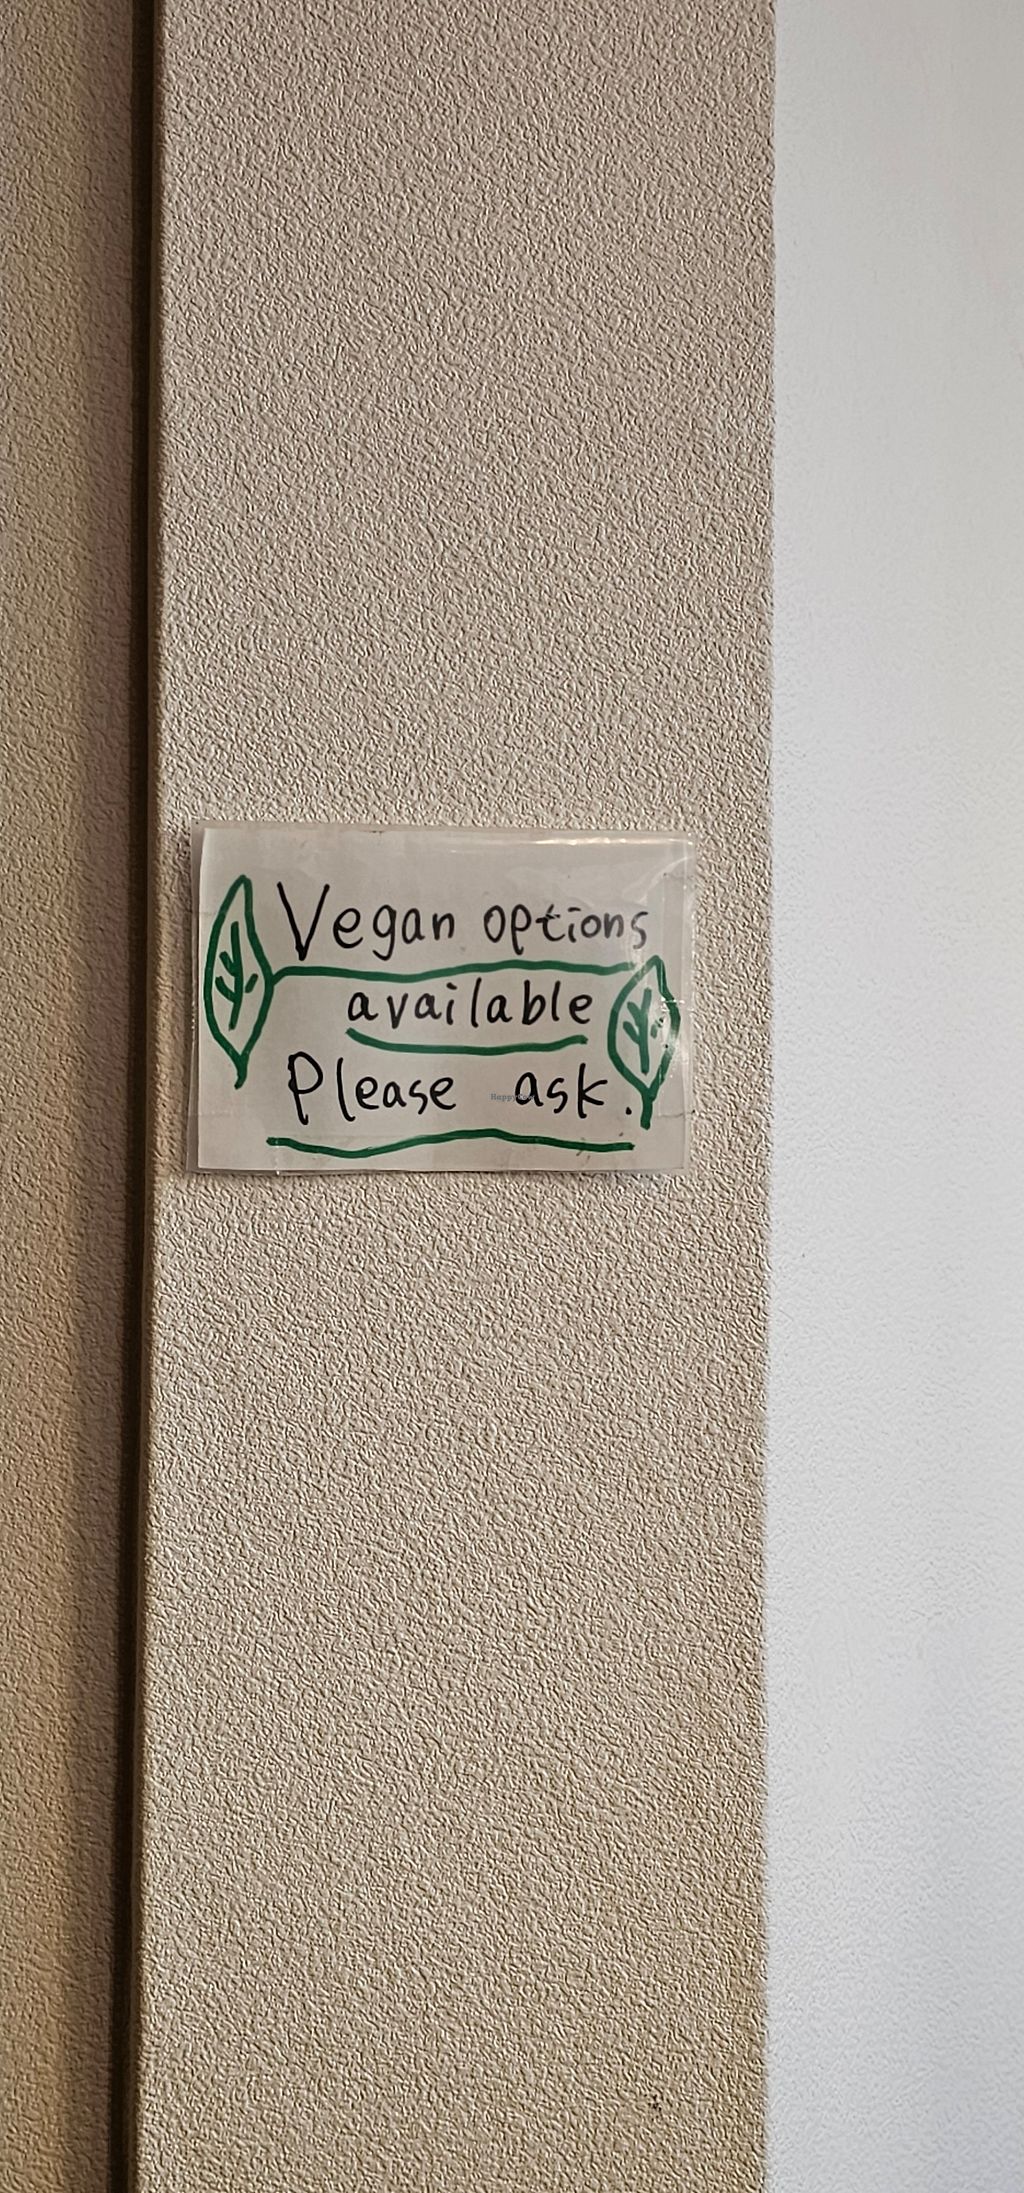 Vegan options
available
Please ask.
HappyCow